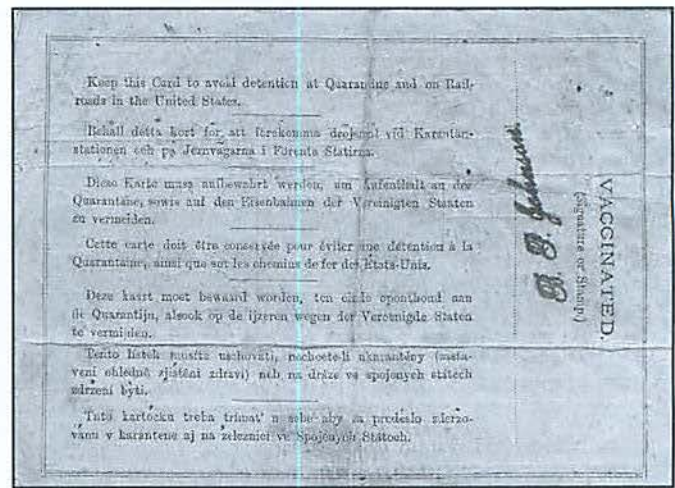 Keep this Card to avoid detention at Quarantine and on Rail-
roads in the United States.
Behall detta kort för att förekomma dröjsmål vid Karantän-
stationen och på Jernvägarna i Förenta Statirna.
Diese Karte muss aufbewahrt werden, um Aufenthalt an der
Quarantäne, sowie auf den Eisenbahnen der Vereinigten Staaten
zu vermeiden.
Cette carte doit être conservée pour éviter une détention à la
Quarantaine, ainsi que sur les chemins de fer des États-Unis.
Deze kaart moet bewaard worden, ten einde oponthoud aan
de Quarantijn, alsook op de ijzeren wegen der Vereenigde Staten
te vermijden.
Tento lístek musíte uschovati, nechcete-li ukarantény (zasta-
vení ohledně zjištění zdraví) neb na dráze ve spojených státech
zdrženi býti.
Tuto kartočku treba trímat' u sebe aby sa predešlo zderžo-
vánu v karantene aj na železnici ve Spojených Státoch.
VACCINATED.
(Signature or Stamp)
Johnson.